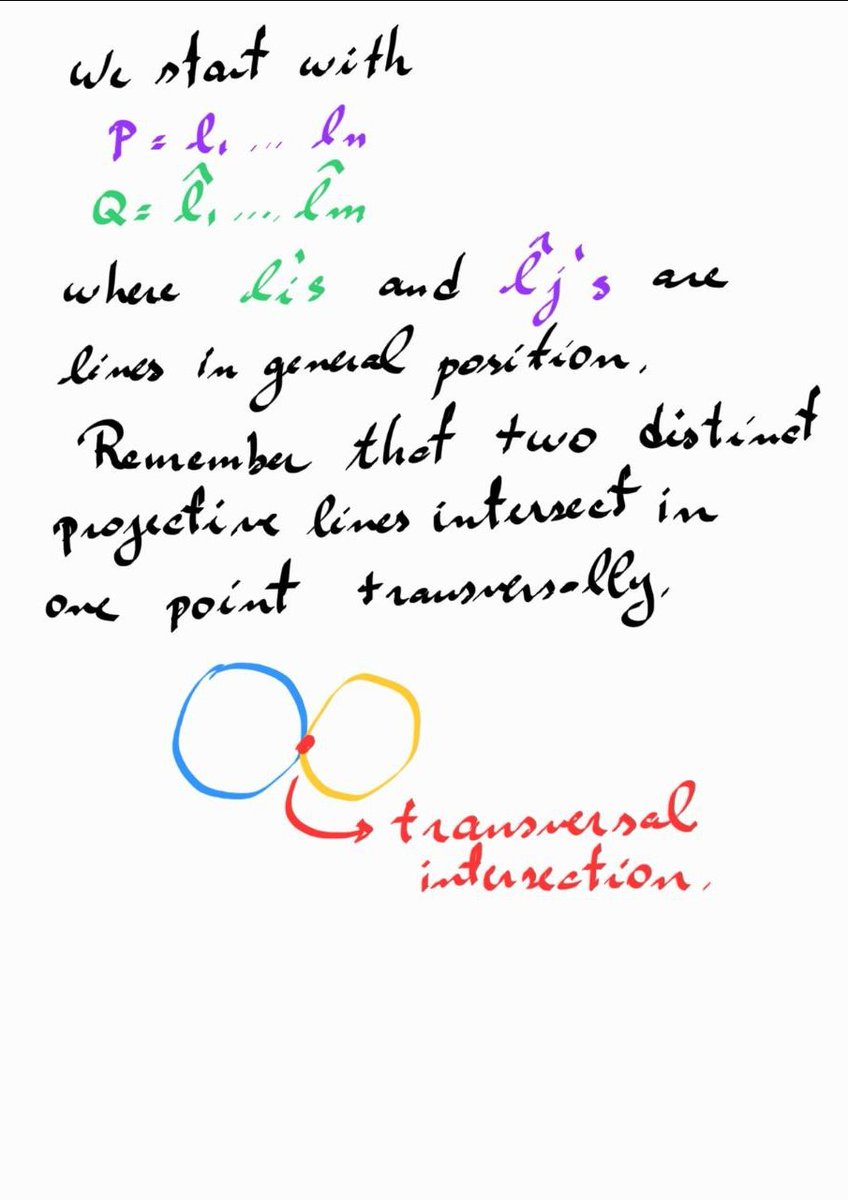 We start with
P = l₁ ... lₙ
Q = l̂₁ .... l̂ₘ
where lᵢ's and l̂ⱼ's are
lines in general position.
Remember that two distinct
projective lines intersect in
one point transversally.
transversal
intersection.